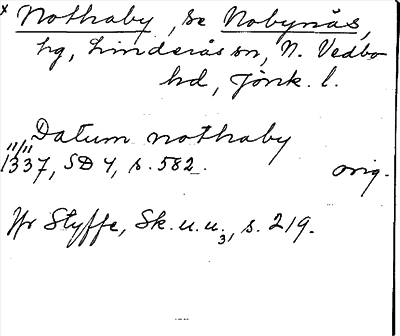 x Nothaby, se Nobynäs,
hg, Linderås sn, N. Vedbo
hd, Jönk. l.
Datum nothaby
11/11 1337, SD 4, s. 582. orig.
Jfr Styffe, Sk. u. u.3, s. 219.